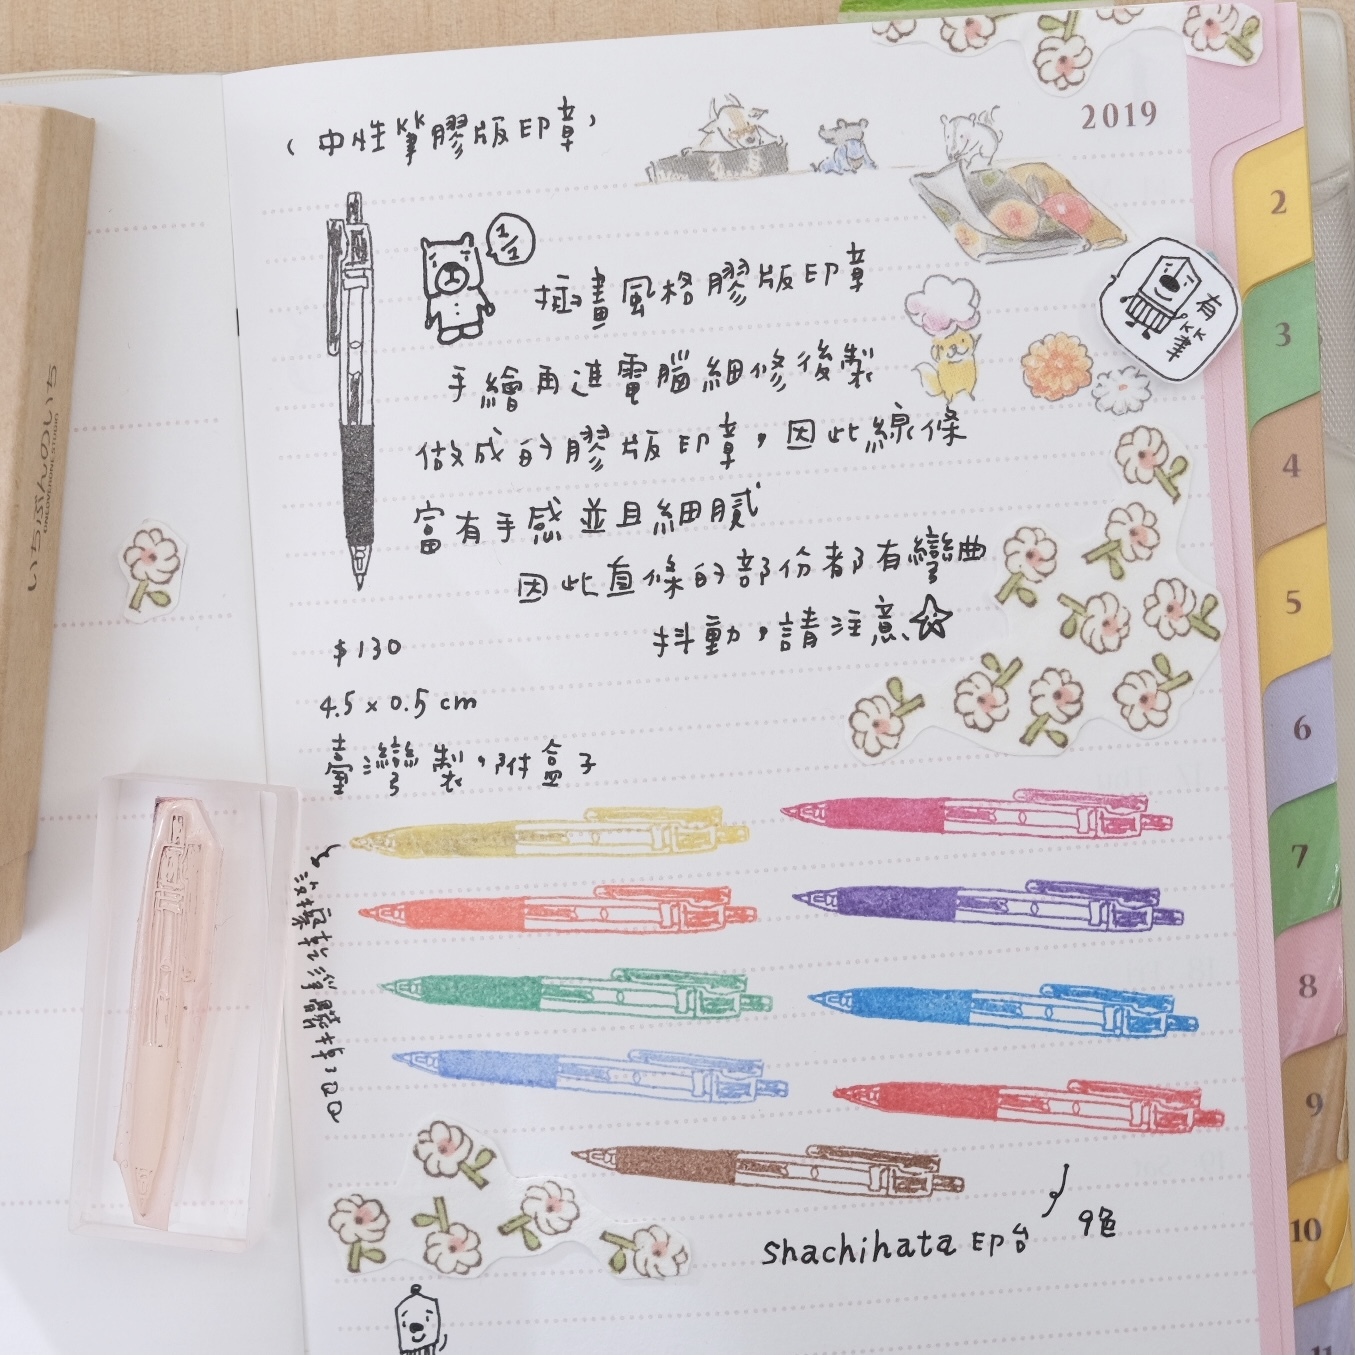 2019
（中性筆膠版印章）
1/1
插畫風格膠版印章
手繪再進電腦細修後製
做成的膠版印章，因此線條
富有手感並且細膩
因此直條的部份都有彎曲
抖動，請注意☆
$130
4.5 x 0.5 cm
臺灣製，附盒子
有筆
shachihata 印台
9色
2
3
4
5
6
7
8
9
10
11